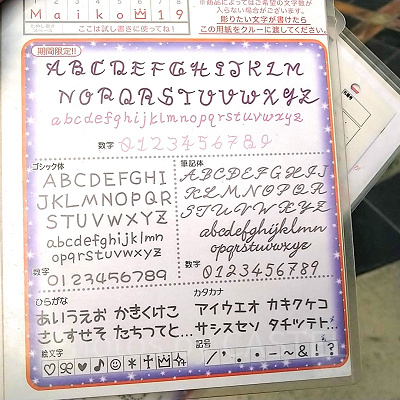 8
Maiko 19
ここは試し書きに使ってね!
※商品によってはご希望の文字数が
入らない場合がございます。
彫りたい文字が書けたら
この用紙をクルーに渡してください。
期間限定!!
ABCDEFGHIJKLM
NOPQRSTUVWXYZ
abcdefghijklmnopqrstuvwxyz
数字 0123456789
ゴシック体
ABCDEFGHI
JKLMNOPQR
STUVWXYZ
abcdefghijklmn
opqrstuvwxyz
数字
0123456789
筆記体
ABCDEFGHIJ
KLMNOPQR
STUVWXYZ
abcdefghijklmn
opqrstuvwxyz
数字 0123456789
ひらがな
あいうえお かきくけこ
さしすせそ たちつてと...
カタカナ
アイウエオ カキクケコ
サシスセソ タチツテト...
絵文字
♡ ♥ ♪ ☺ * ✝
記号
/ ' . • − ~ & ! ?